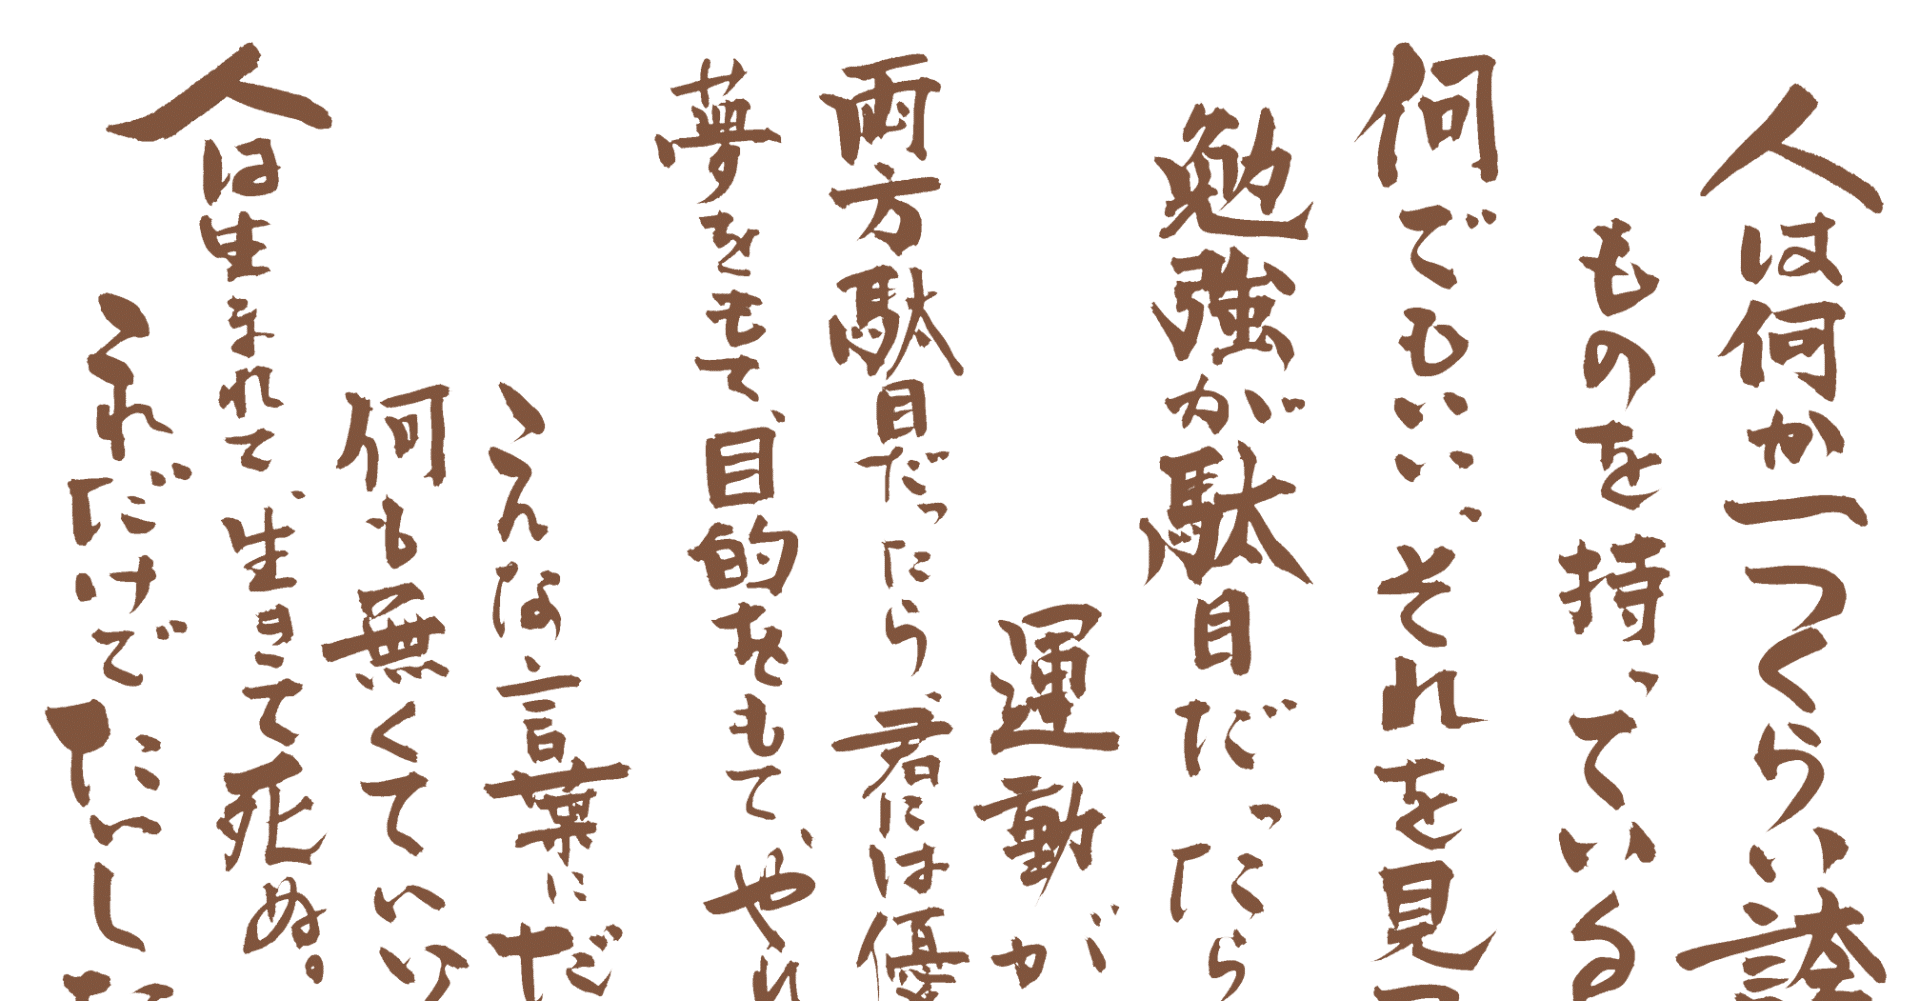 人は何か一つくらい誇
ものを持っている
何でもいい、それを見つ
勉強が駄目だったら
運動が
両方駄目だったら、君には優
夢をもて、目的をもて、やれ
こんな言葉にだ
何も無くていい
人は生まれて、生きて死ぬ。
これだけでたいした